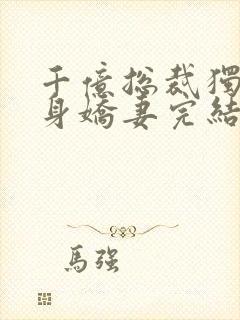 千億総裁獨
身嬌妻完結
馬強